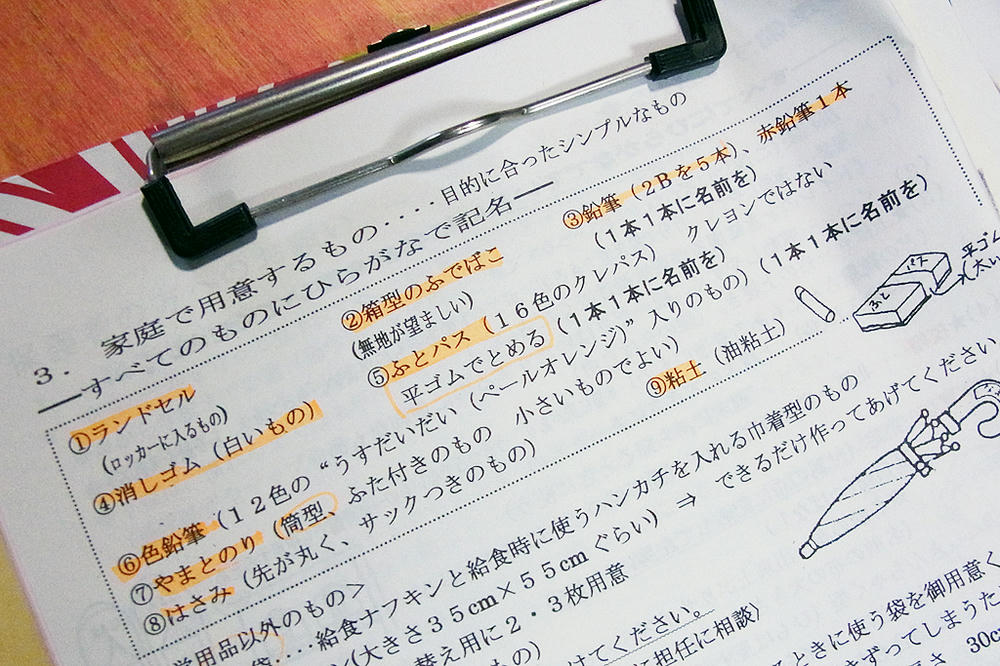 3．家庭で用意するもの‥‥目的に合ったシンプルなもの
――すべてのものにひらがなで記名――
①ランドセル
(ロッカーに入るもの)
②箱型のふでばこ
(無地が望ましい)
③鉛筆（2Bを5本）、赤鉛筆1本
(1本1本に名前を)
④消しゴム（白いもの）
⑤ふとパス（16色のクレパス） クレヨンではない
平ゴムでとめる (1本1本に名前を)
⑥色鉛筆（12色の“うすだいだい（ペールオレンジ）”入りのもの）(1本1本に名前を)
⑦やまとのり（筒型、ふた付きのもの 小さいものでよい）
⑧はさみ（先が丸く、サックつきのもの）
⑨粘土（油粘土）
パス
平ゴム
学用品以外のもの＞
袋‥‥給食ナフキンと給食時に使うハンカチを入れる巾着型のもの
ン(大きさ35cm×55cmぐらい) ⇒ できるだけ作ってあげてください
替え用に2・3枚用意
けてください。
に担任に相談）
ときに使う袋を御用意く
ずってしまうた
30c